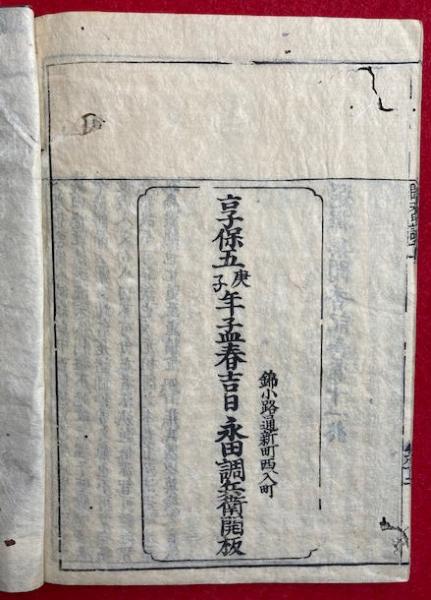 錦小路通新町西入町
享保五庚子年孟春吉日 永田調兵衛開板